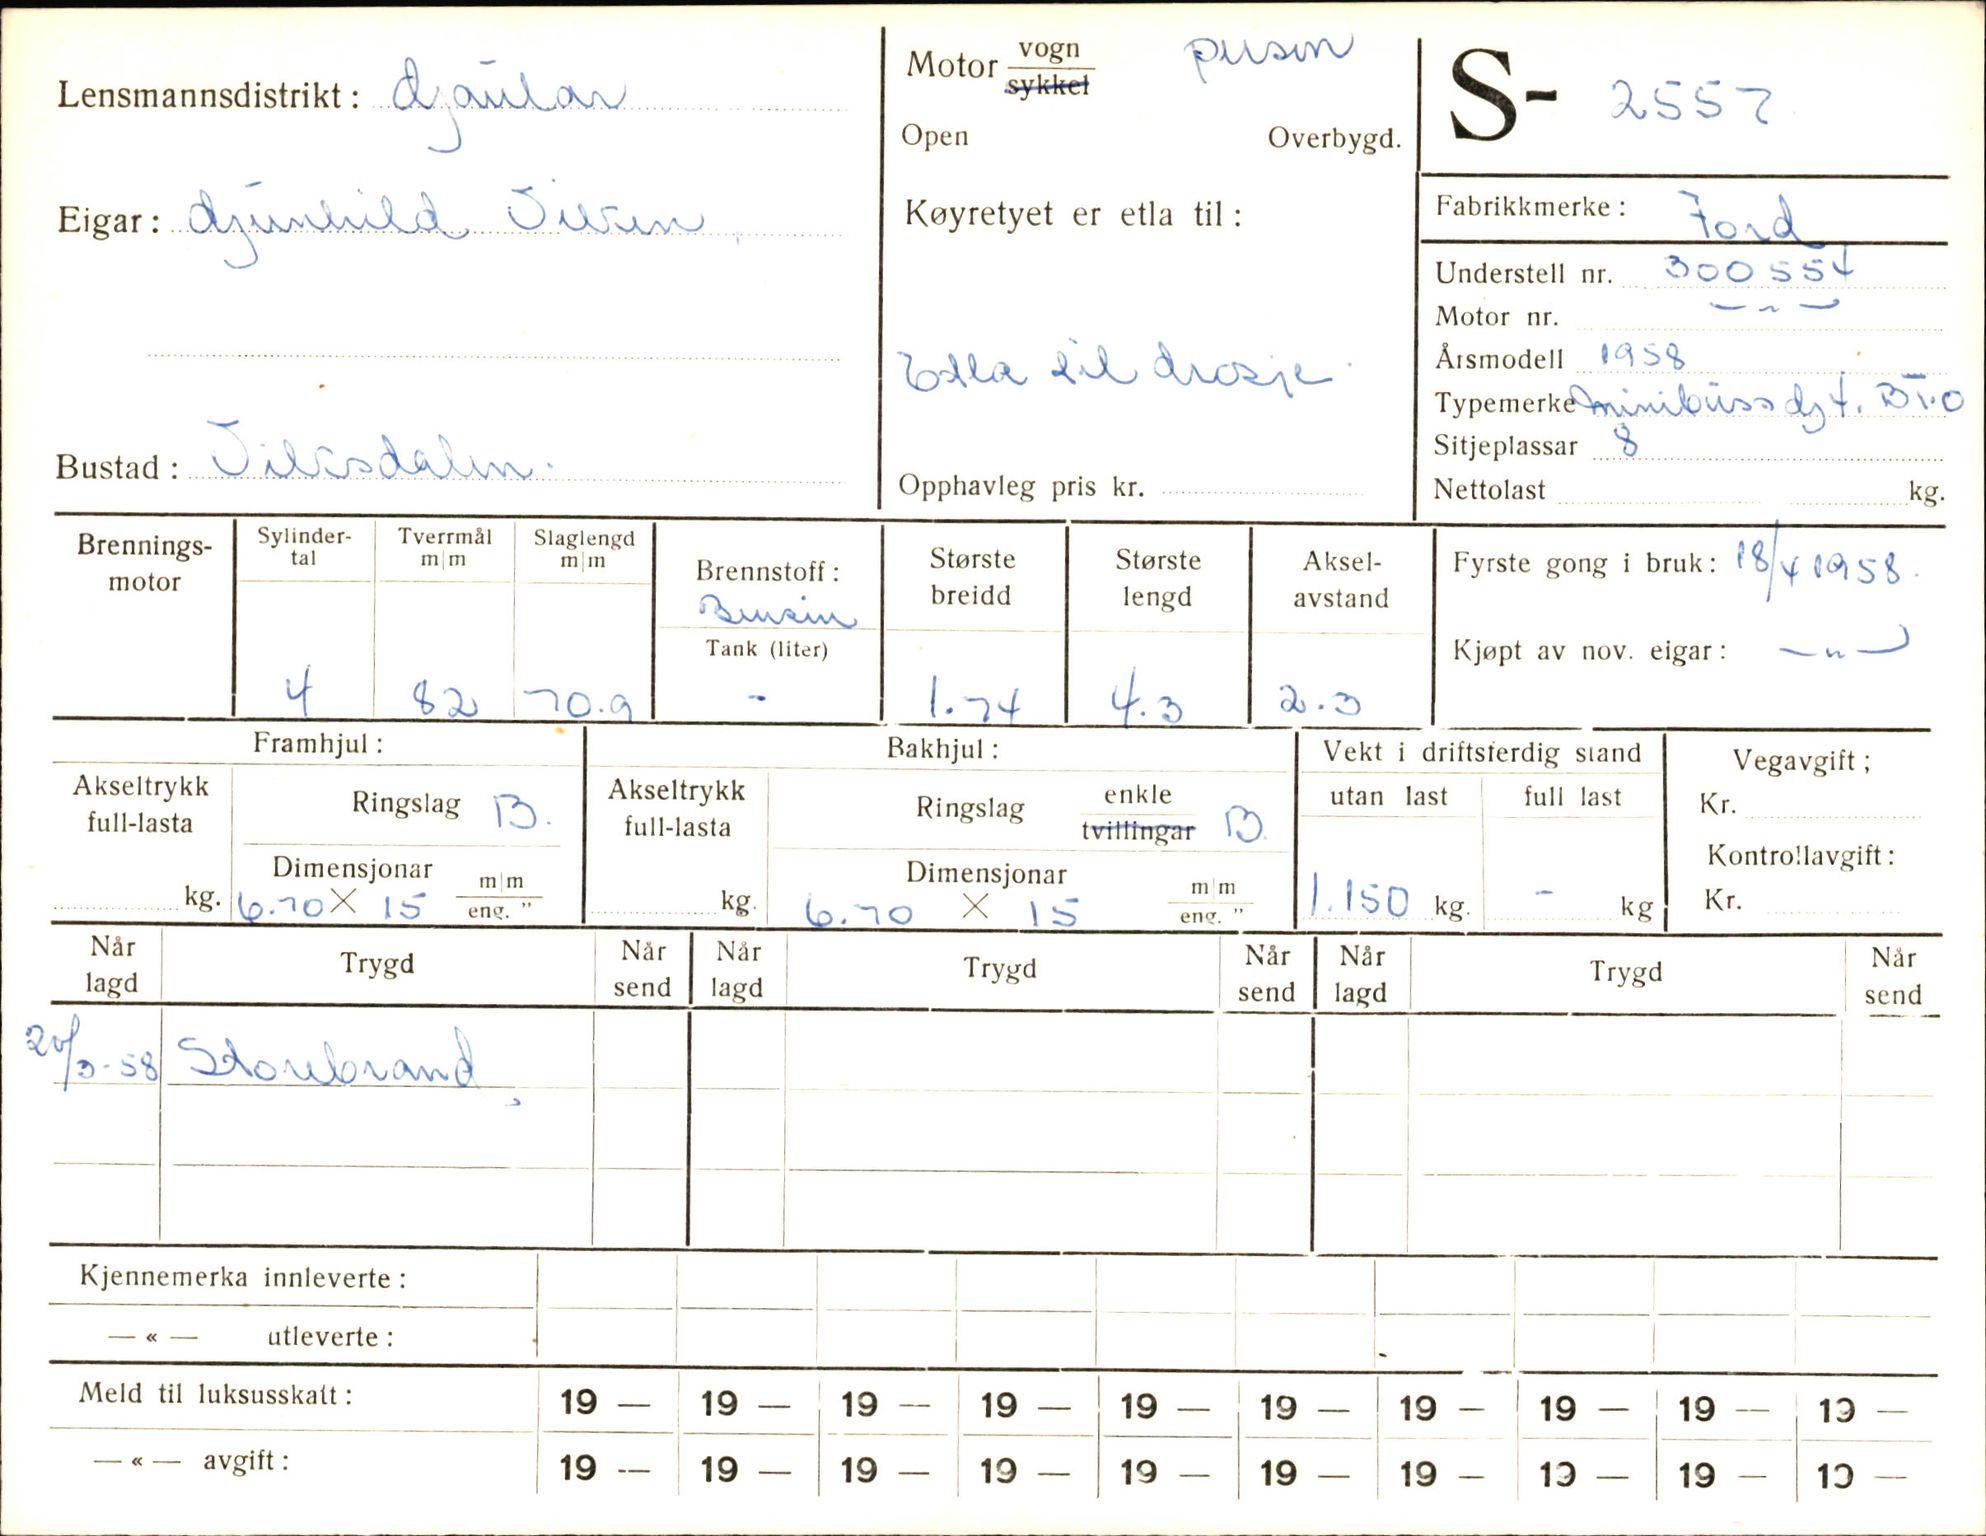 Lensmannsdistrikt: Gaular
Eigar: Gunhild Viken
Bustad: Viksdalen.
Motor vogn / sykkel person
Open Overbygd.
Køyretyet er etla til:
Etla til drosje.
Opphavleg pris kr.
S- 2557
Fabrikkmerke: Ford
Understell nr. 300554
Motor nr. — " —
Årsmodell 1958
Typemerke minibuss G 4.
Sitjeplassar 8
Nettolast kg.
Brennings-
motor
Sylinder-
tal
4
Tverrmål
m|m
82
Slaglengd
m|m
70.9
Brennstoff:
Bensin
Tank (liter)
-
Største
breidd
1.74
Største
lengd
4.3
Aksel-
avstand
2.3
Fyrste gong i bruk: 18/4 1958.
Kjøpt av nov. eigar: — " —
Framhjul:
Akseltrykk
full-lasta
kg.
Ringslag B.
Dimensjonar m|m
6.70 X 15 eng. "
Bakhjul:
Akseltrykk
full-lasta
kg.
Ringslag enkle / tvillingar B.
Dimensjonar m|m
6.70 X 15 eng. "
Vekt i driftsferdig stand
utan last
1.150 kg.
full last
- kg
Vegavgift;
Kr.
Kontrollavgift:
Kr.
Når
lagd Trygd Når
send Når
lagd Trygd Når
send Når
lagd Trygd Når
send
20/3-58 Storebrand
Kjennemerka innleverte:
— « — utleverte:
Meld til luksusskatt: 19 — 19 — 19 — 19 — 19 — 19 — 19 — 19 — 19 — 19 —
— « — avgift: 19 — 19 — 19 — 19 — 19 — 19 — 19 — 19 — 19 — 19 —